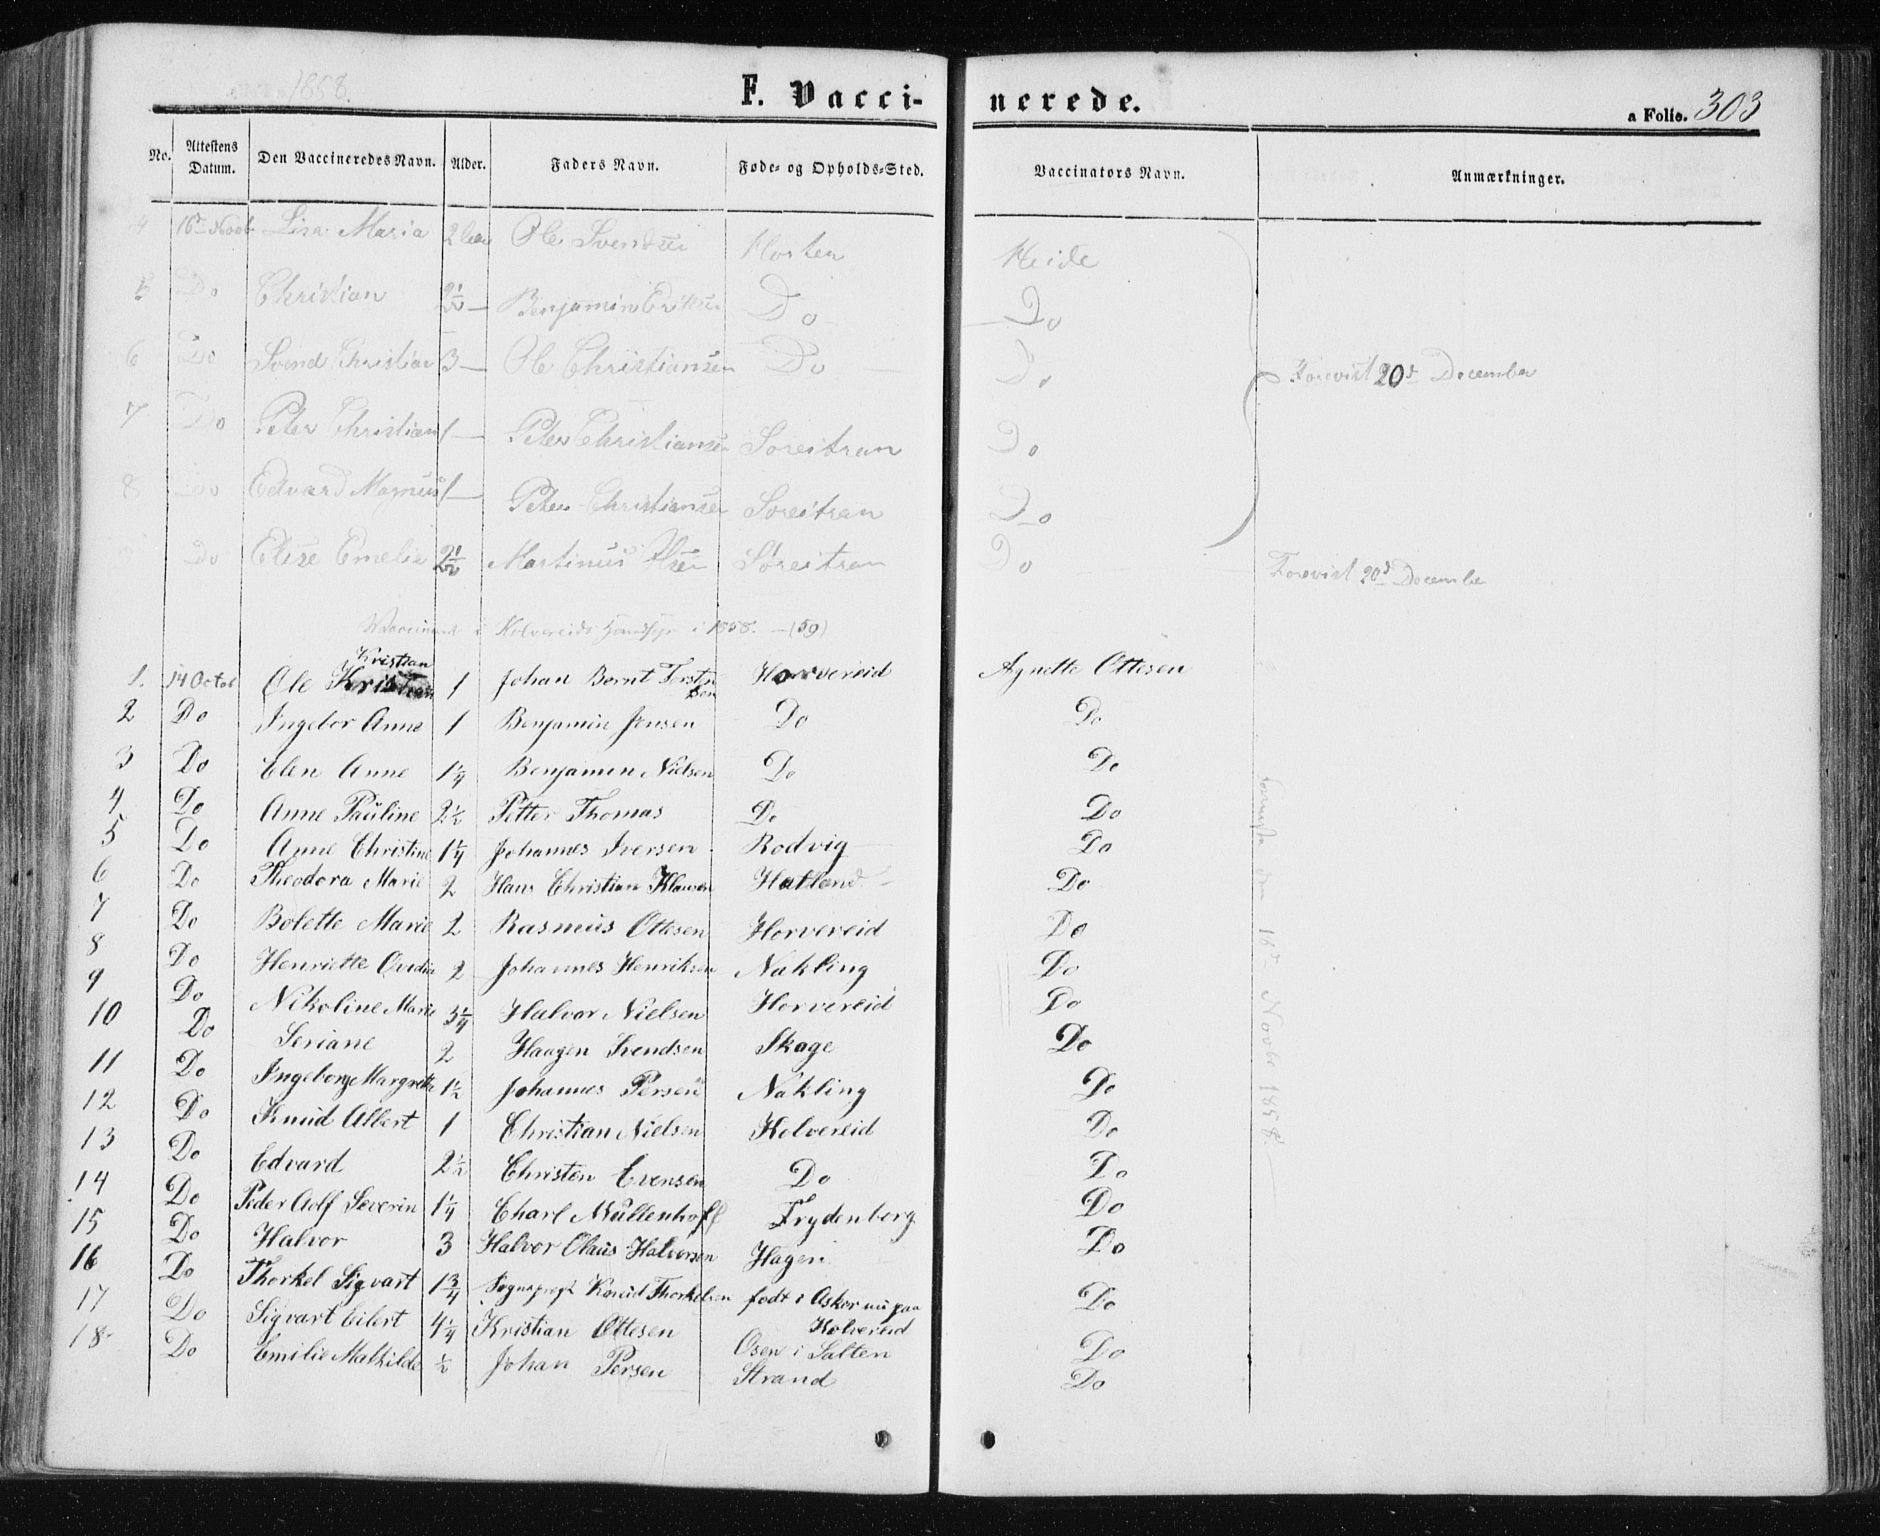 1858.
F. Vaccinerede.
a Folio. 303
No. Attestens Datum. Den Vaccineredes Navn. Alder. Faders Navn. Føde- og Opholds-Sted. Vaccinators Navn. Anmærkninger.
4 16de Novbr Lisa Maria 2 Ole Svendsen Horten Heide
5 Do Christian 2½ — Benjamin Do Do
6 Do Svend Christian 3 — Ole Christiansen Do Do Forevist 20de December
7 Do Peter Christian 1 — Peter Christiansen Soreitran Do
8 Do Edvard Magnus 1 — Peter Christiansen Soreitran Do
Do Elise Emelie 2½ Martinus Soreitran Do Forevist 20de December
i Kolvereids i 1858. — (59)
1. 14 Octob Ole Kristian Kristian 1 Johan Bernt Torstensen Horvereid Agnette Ottesen
2 Do Ingebor Anne 1 Benjamin Jensen Do Do
3 Do Elen Anne 1¼ Benjamin Nielsen Do Do
4 Do Anne Pauline 2½ Petter Thomas Do Do
5 Do Anne Christine 1¼ Johannes Iversen Rodvig Do
6 Do Theodora Marie 2 Hans Christian Klausen Hatland Do
7 Do Bolette Marie 2 Rasmus Ottesen Horvereid Do
8 Do Henriette Ovidia 2 Johannes Henriksen Nakling Do
9 Do Nikoline Marie 3¼ Halvor Nielsen Horvereid Do
10 Do Seriane 2 Haagen Svendsen Skage Do
11 Do Ingeborg Margrethe 1½ Johannes Persen Nakling Do
12 Do Knud Albert 1 Christian Nielsen Kolvereid Do
13 Do Edvard 2½ Christen Evensen Do Do
14 Do Peder Adolf Severin 1¼ Charl Mullenhoff Frydenborg Do
15 Do Halvor 3 Halvor Olaus Halvorsen Hagen Do
16 Do Thorkel Sigvart 1¾ Sogneprest Knud Thorkelsen født i Asker nu paa Kolvereid Do
17 Do Sigvart Eilert 4¼ Kristian Ottesen Osen i Salten Do
18 Do Emilie Mathilde ½ Johan Persen Strand Do
den 16de Novbr 1858 —